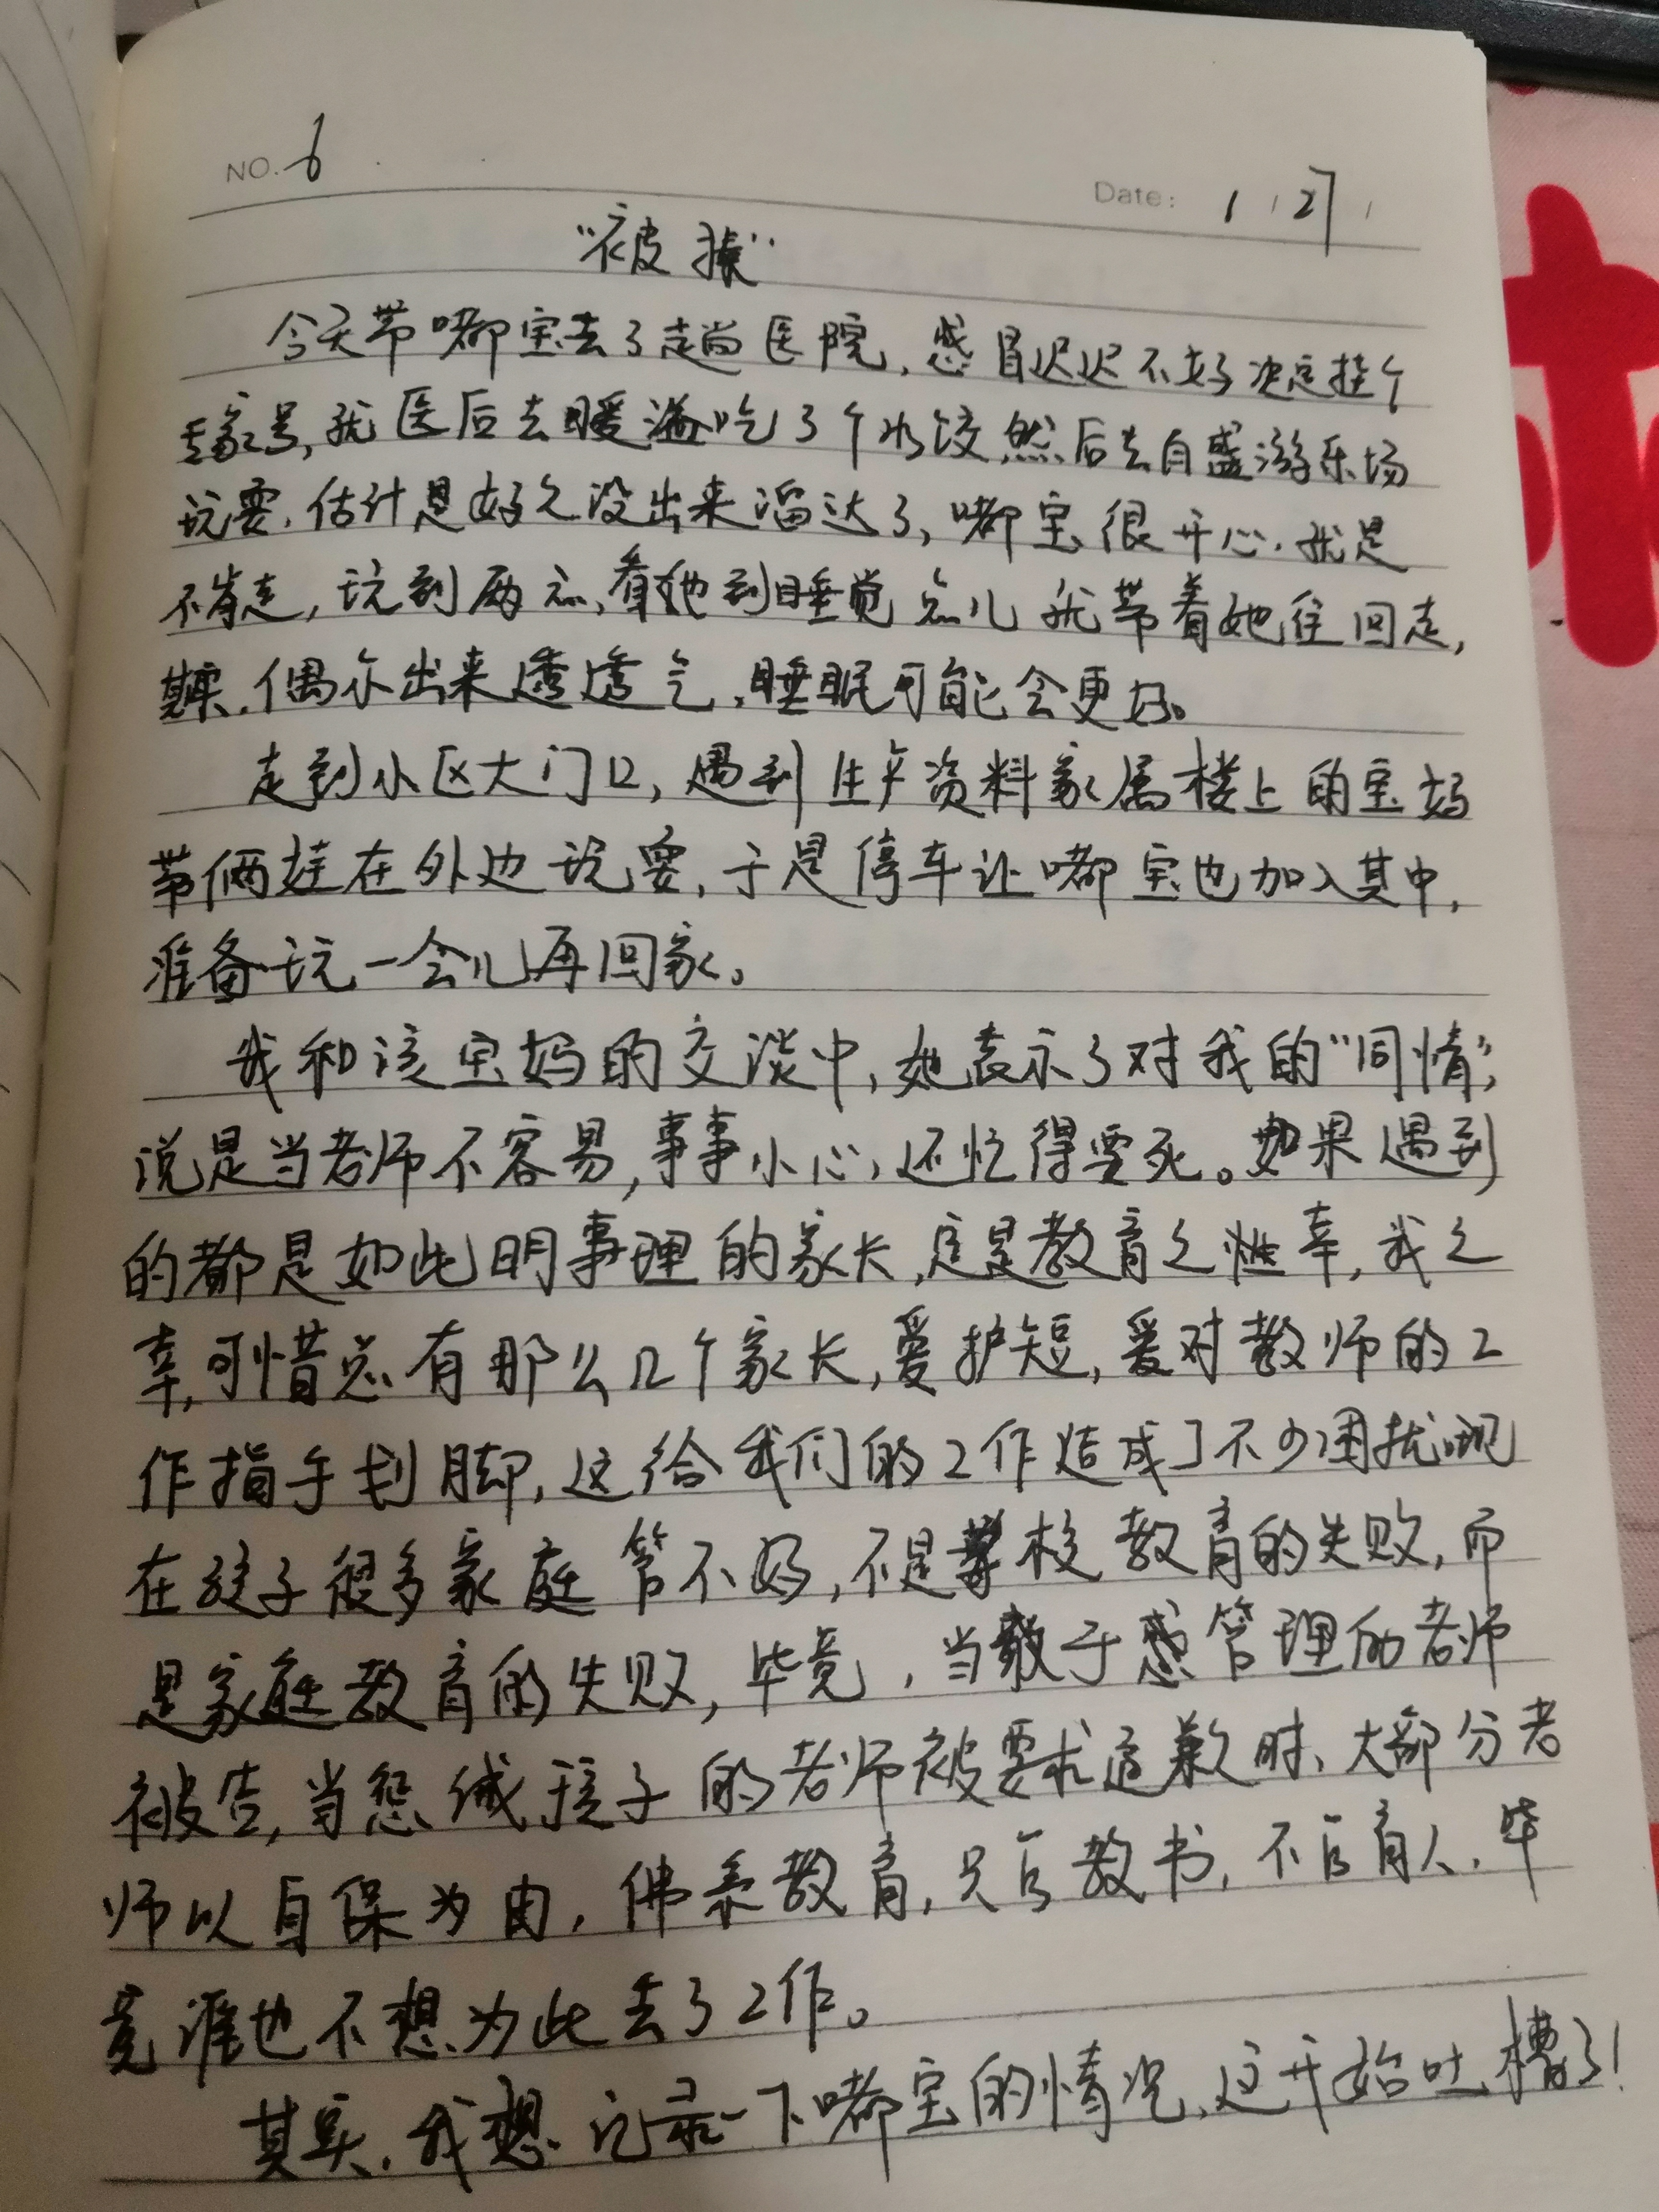 NO. 6
Date: 1 / 27 /
"被揍"
今天带嘟宝去了趟医院，感冒迟迟不好决定挂个
专家号，就医后去暖滋吃了个水饺，然后去自盛游乐场
玩耍，估计是好久没出来溜达了，嘟宝很开心，就是
不肯走，玩到两点，看她到睡觉点儿就带着她往回走，
其实，偶尔出来透透气，睡眠可能会更好。
走到小区大门口，遇到生产资料家属楼上的宝妈
带俩娃在外边玩耍，于是停车让嘟宝也加入其中，
准备玩一会儿再回家。
我和该宝妈的交谈中，她表示了对我的"同情"，
说是当老师不容易，事事小心，还忙得要死。如果遇到
的都是如此明事理的家长，定是教育之幸，我之
幸，可惜总有那么几个家长，爱护短，爱对教师的工
作指手划脚，这给我们的工作造成了不少困扰，现
在孩子很多家庭管不好，不是学校教育的失败，而
是家庭教育的失败，毕竟，当敢于惑管理的老师
被告，当惩诫孩子的老师被要求道歉时，大部分老
师以自保为由，佛系教育，只官教书，不官育人，毕
竟谁也不想为此丢了工作。
其实，我想记录一下嘟宝的情况，这开始吐槽了！